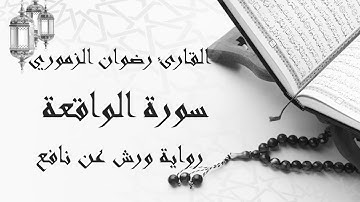 القارئ رضوان الزموري
سورة الواقعة
رواية ورش عن نافع